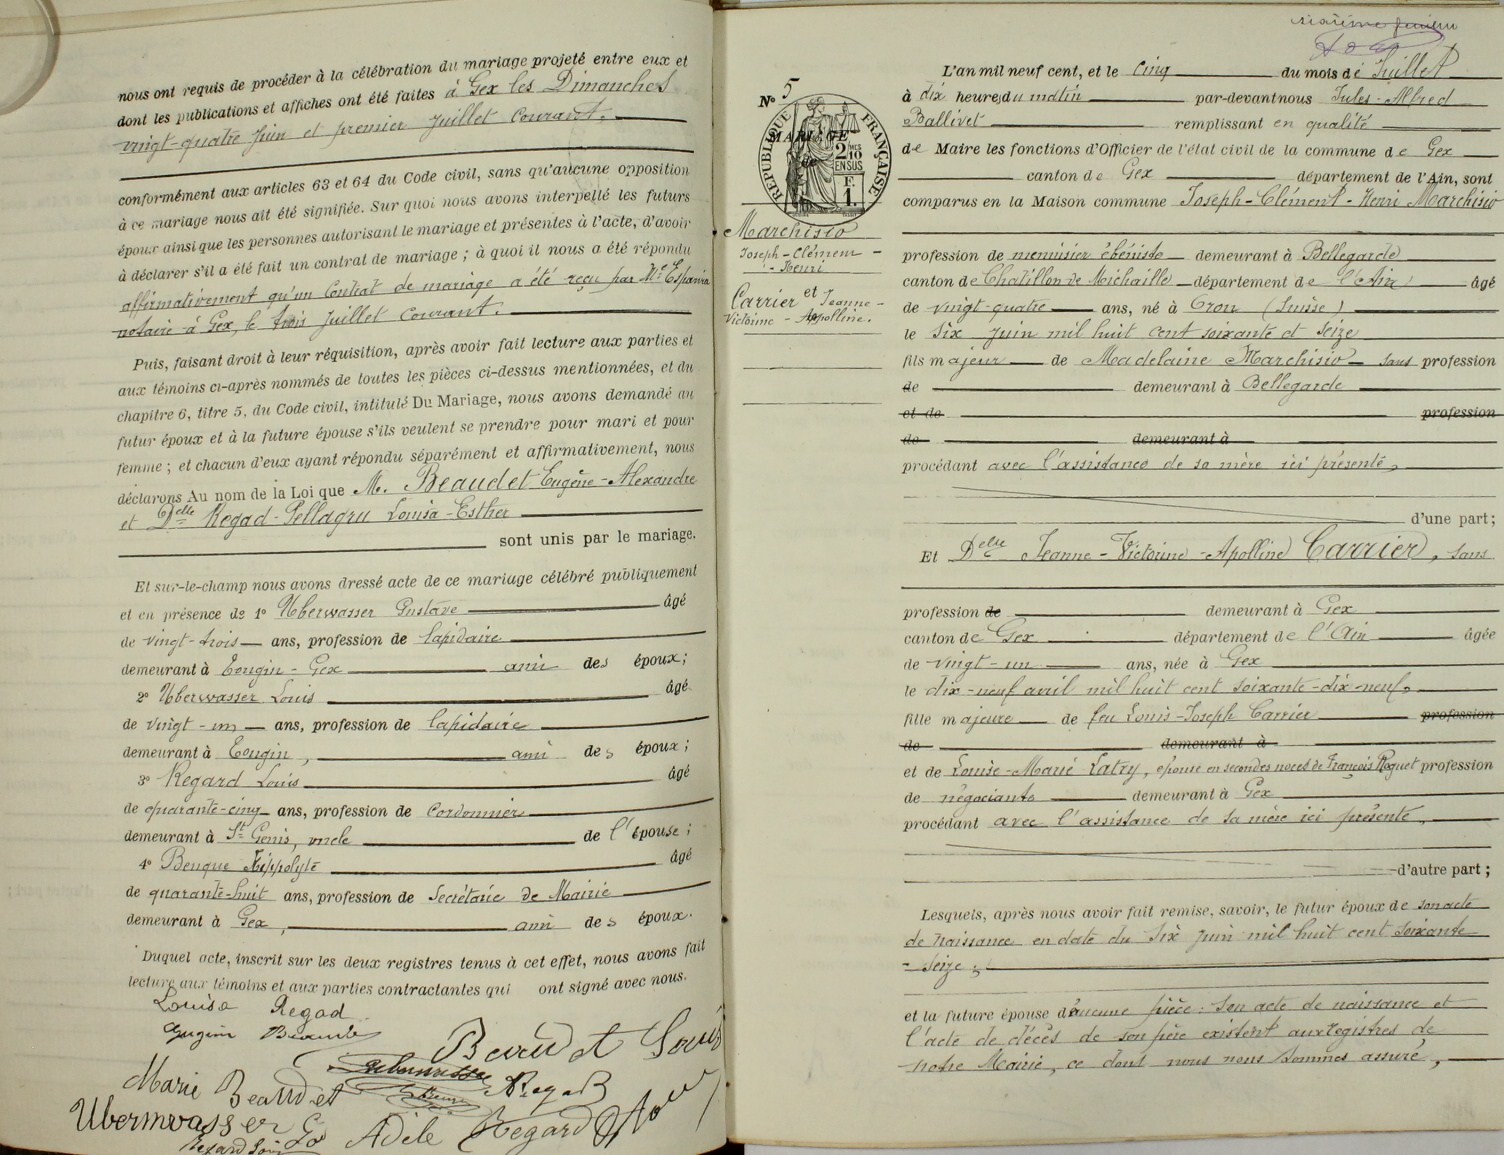 nous ont requis de procéder à la célébration du mariage projeté entre eux et
dont les publications et affiches ont été faites à Gex les Dimanches
vingt-quatre Juin et premier Juillet courant.
conformément aux articles 63 et 64 du Code civil, sans qu'aucune opposition
à ce mariage nous ait été signifiée. Sur quoi nous avons interpellé les futurs
époux ainsi que les personnes autorisant le mariage et présentes à l'acte, d'avoir
à déclarer s'il a été fait un contrat de mariage ; à quoi il nous a été répondu
affirmativement qu'un Contrat de mariage a été reçu par Me
notaire à Gex, le trois Juillet Courant.
Puis, faisant droit à leur réquisition, après avoir fait lecture aux parties et
aux témoins ci-après nommés de toutes les pièces ci-dessus mentionnées, et du
chapitre 6, titre 5, du Code civil, intitulé Du Mariage, nous avons demandé au
futur époux et à la future épouse s'ils veulent se prendre pour mari et pour
femme ; et chacun d'eux ayant répondu séparément et affirmativement, nous
déclarons Au nom de la Loi que M. Beaudet Eugène-Alexandre
et Delle Regad-Pellagru Louisa-Esther
sont unis par le mariage.
Et sur-le-champ nous avons dressé acte de ce mariage célébré publiquement
et en présence de 1° Uberwasser Gustave âgé
de vingt-trois ans, profession de lapidaire
demeurant à Tougin-Gex ami des époux ;
2° Uberwasser Louis âgé
de vingt-un ans, profession de lapidaire
demeurant à Tougin, ami des époux ;
3° Regard Louis âgé
de quarante-cinq ans, profession de Cordonnier
demeurant à St Genis, oncle de l'épouse ;
4° Benque Hippolyte âgé
de quarante-huit ans, profession de Secrétaire de Mairie
demeurant à Gex, ami des époux.
Duquel acte, inscrit sur les deux registres tenus à cet effet, nous avons fait
lecture aux témoins et aux parties contractantes qui ont signé avec nous.
Louisa Regad
Beaudet Louis
Marie Beaudet
Regad
Adèle Regard
N° 5
MARIAGE
de
RÉPUBLIQUE FRANÇAISE
2/10 EN SUS
F.
1.
Marchisio
Joseph-Clément-
-Henri
et
Carrier Jeanne-
Victorine-Appolline.
L'an mil neuf cent, et le cinq du mois de Juillet
à dix heures du matin par-devant nous Jules-Alfred
Ballivet remplissant en qualité
de Maire les fonctions d'Officier de l'état civil de la commune de Gex
canton de Gex département de l'Ain, sont
comparus en la Maison commune Joseph-Clément-Henri Marchisio
profession de menuisier ébéniste demeurant à Bellegarde
canton de Chatillon de Michaille département de l'Ain âgé
de vingt-quatre ans, né à Oron (Suisse)
le six juin mil huit cent soixante et seize
fils majeur de Madelaine Marchisio sans profession
de demeurant à Bellegarde
et de profession
de demeurant à
procédant avec l'assistance de sa mère ici présente,
d'une part ;
Et Delle Jeanne-Victorine-Apolline Carrier, sans
profession de demeurant à Gex
canton de Gex département de l'Ain âgée
de vingt-un ans, née à Gex
le dix-neuf avril mil huit cent soixante-dix-neuf,
fille majeure de feu Louis-Joseph Carrier profession
de demeurant à
et de Louise-Marie Latry, épouse en secondes noces de François Roguet profession
de négociants demeurant à Gex
procédant avec l'assistance de sa mère ici présente,
d'autre part ;
Lesquels, après nous avoir fait remise, savoir, le futur époux de son acte
de naissance en date du six juin mil huit cent soixante
-seize ;
et la future épouse d'aucune pièce : son acte de naissance et
l'acte de décès de son père existent aux registres de
notre Mairie, ce dont nous nous sommes assuré,